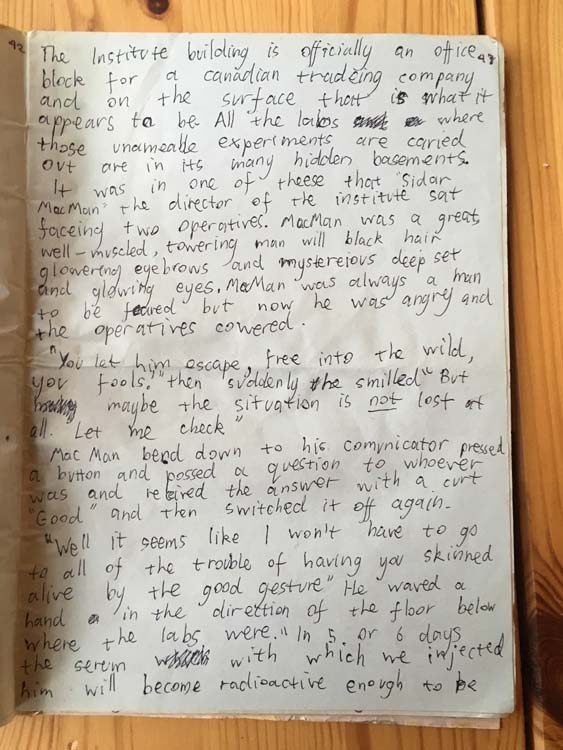 42
The Institute building is officially an office 43
block for a canadian tradeing company
and on the surface that is what it
appears to be. All the labs where
those unameable experiments are caried
out are in its many hidden basements.
It was in one of theese that "Sidar
MacMan" the director of the institute sat
faceing two operatives. MacMan was a great,
well-muscled, towering man will black hair
glowering eyebrows and mystereious deep set
and glowing eyes. MacMan was always a man
to be feared but now he was angry and
the operatives cowered.
"You let him escape, free into the wild,
you fools." then suddenly he smilled" But
maybe the situation is not lost at
all. Let me check"
Mac Man bend down to his comunicator pressed
a button and possed a question to whoever
was and the answer with a curt
"Good" and then switched it off again.
"Well it seems like I won't have to go
to all of the trouble of having you skinned
alive by the good gesture" He waved a
hand in the direction of the floor below
where the labs were. "In 5 or 6 days
the serem with which we injected
him will become radioactive enough to be